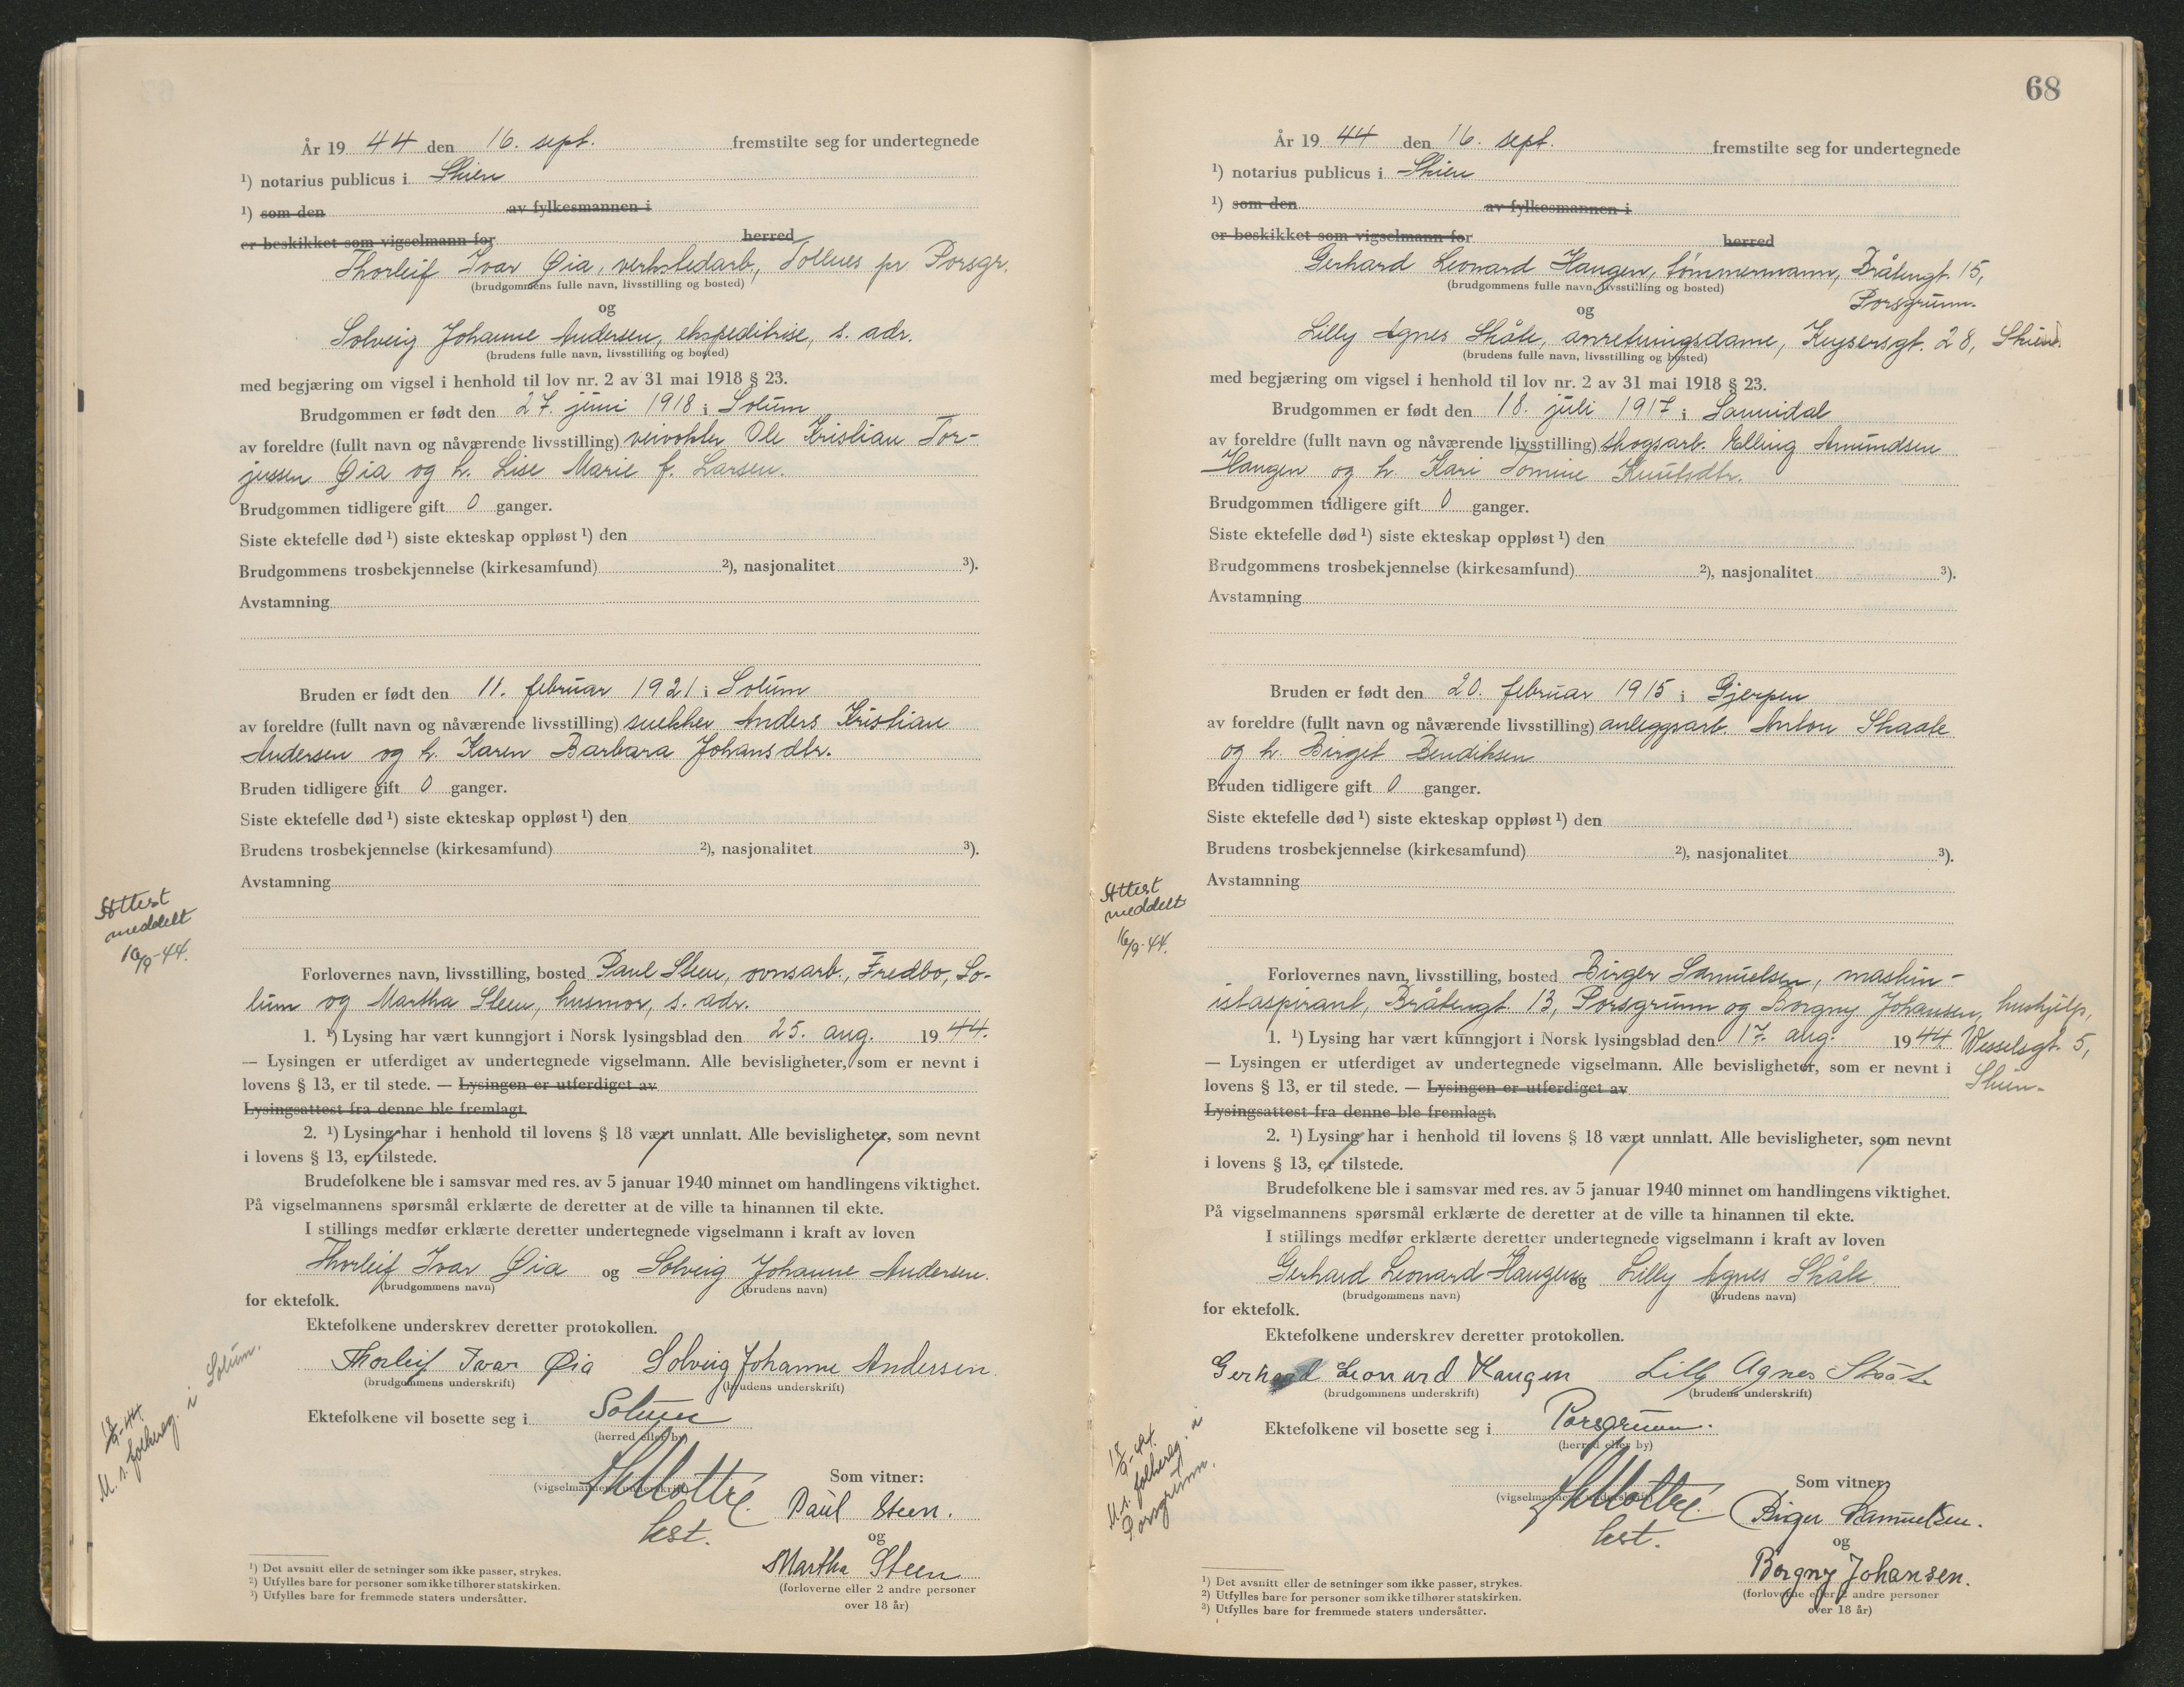 År 19 44 den 16. sept. fremstilte seg for undertegnede
¹) notarius publicus i Skien
¹) som den av fylkesmannen i
er beskikket som vigselmann for herred
Thorleif Ivar Øia, verkstedarb., Tollnes pr Porsgr.
(brudgommens fulle navn, livsstilling og bosted)
og
Solveig Johanne Andersen, ekspeditrise, s. adr.
(brudens fulle navn, livsstilling og bosted)
med begjæring om vigsel i henhold til lov nr. 2 av 31 mai 1918 § 23.
Brudgommen er født den 27. juni 1918 i Solum
av foreldre (fullt navn og nåværende livsstilling) veivokter Ole Kristian Tor-
jussen Øia og h. Lise Marie f. Larsen.
Brudgommen tidligere gift 0 ganger.
Siste ektefelle død ¹) siste ekteskap oppløst ¹) den
Brudgommens trosbekjennelse (kirkesamfund) ²), nasjonalitet ³).
Avstamning
Bruden er født den 11. februar 1921 i Solum
av foreldre (fullt navn og nåværende livsstilling) snekker Anders Kristian
Andersen og h. Karen Barbara Johansdtr.
Bruden tidligere gift 0 ganger.
Siste ektefelle død ¹) siste ekteskap oppløst ¹) den
Brudens trosbekjennelse (kirkesamfund) ²), nasjonalitet ³).
Avstamning
Attest
meddelt
16/9-44.
Forlovernes navn, livsstilling, bosted Paul Steen, ovnsarb., Fredbo, So-
lum og Martha Steen, husmor, s. adr.
1. ¹) Lysing har vært kunngjort i Norsk lysingsblad den 25. aug. 19 44.
— Lysingen er utferdiget av undertegnede vigselmann. Alle bevisligheter, som er nevnt i
lovens § 13, er til stede. — Lysingen er utferdiget av
Lysingsattest fra denne ble fremlagt.
2. ¹) Lysing har i henhold til lovens § 18 vært unnlatt. Alle bevisligheter, som nevnt
i lovens § 13, er tilstede.
Brudefolkene ble i samsvar med res. av 5 januar 1940 minnet om handlingens viktighet.
På vigselmannens spørsmål erklærte de deretter at de ville ta hinannen til ekte.
I stillings medfør erklærte deretter undertegnede vigselmann i kraft av loven
Thorleif Ivar Øia og Solveig Johanne Andersen.
(brudgommens navn) (brudens navn)
for ektefolk.
Ektefolkene underskrev deretter protokollen.
Thorleif Ivar Øia Solveig Johanne Andersen.
(brudgommens underskrift) (brudens underskrift)
Ektefolkene vil bosette seg i Solum
(herred eller by)
18/9-44
M. s. folkereg. i Solum.
(vigselmannens underskrift)
Som vitner:
Paul Steen.
og
Martha Steen
(forloverne eller 2 andre personer
over 18 år)
¹) Det avsnitt eller de setninger som ikke passer, strykes.
²) Utfylles bare for personer som ikke tilhører statskirken.
³) Utfylles bare for fremmede staters undersåtter.
68
År 19 44 den 16. sept. fremstilte seg for undertegnede
¹) notarius publicus i Skien
¹) som den av fylkesmannen i
er beskikket som vigselmann for herred
Gerhard Leonard Haugen, tømmermann, Bråtengt. 15,
(brudgommens fulle navn, livsstilling og bosted)
Porsgrunn.
og
Lilly Agnes Skåte, anretningsdame, Keysersgt. 28, Skien.
(brudens fulle navn, livsstilling og bosted)
med begjæring om vigsel i henhold til lov nr. 2 av 31 mai 1918 § 23.
Brudgommen er født den 18. juli 1917 i Sannidal
av foreldre (fullt navn og nåværende livsstilling) skogsarb. Elling Amundsen
Haugen og h. Kari Tomine Knutsdtr.
Brudgommen tidligere gift 0 ganger.
Siste ektefelle død ¹) siste ekteskap oppløst ¹) den
Brudgommens trosbekjennelse (kirkesamfund) ²), nasjonalitet ³).
Avstamning
Bruden er født den 20. februar 1915 i Gjerpen
av foreldre (fullt navn og nåværende livsstilling) anleggsarb. Anton Skaate
og h. Birgit Bendiksen
Bruden tidligere gift 0 ganger.
Siste ektefelle død ¹) siste ekteskap oppløst ¹) den
Brudens trosbekjennelse (kirkesamfund) ²), nasjonalitet ³).
Avstamning
Attest
meddelt
16/9-44.
Forlovernes navn, livsstilling, bosted Birger Samuelsen, maskin-
istaspirant, Bråtengt. 13, Porsgrunn og Borgny Johansen, hushjelp,
1. ¹) Lysing har vært kunngjort i Norsk lysingsblad den 17. aug. 19 44 Wesselsgt. 5,
— Lysingen er utferdiget av undertegnede vigselmann. Alle bevisligheter, som er nevnt i
Skien.
lovens § 13, er til stede. — Lysingen er utferdiget av
Lysingsattest fra denne ble fremlagt.
2. ¹) Lysing har i henhold til lovens § 18 vært unnlatt. Alle bevisligheter, som nevnt
i lovens § 13, er tilstede.
Brudefolkene ble i samsvar med res. av 5 januar 1940 minnet om handlingens viktighet.
På vigselmannens spørsmål erklærte de deretter at de ville ta hinannen til ekte.
I stillings medfør erklærte deretter undertegnede vigselmann i kraft av loven
Gerhard Leonard Haugen og Lilly Agnes Skåte
(brudgommens navn) (brudens navn)
for ektefolk.
Ektefolkene underskrev deretter protokollen.
Gerhard Leonard Haugen Lilly Agnes Skåte
(brudgommens underskrift) (brudens underskrift)
Ektefolkene vil bosette seg i Porsgrunn.
(herred eller by)
18/9-44.
M. s. folkereg. i
Porsgrunn.
(vigselmannens underskrift)
Som vitner:
Birger Samuelsen.
og
Borgny Johansen.
(forloverne eller 2 andre personer
over 18 år)
¹) Det avsnitt eller de setninger som ikke passer, strykes.
²) Utfylles bare for personer som ikke tilhører statskirken.
³) Utfylles bare for fremmede staters undersåtter.